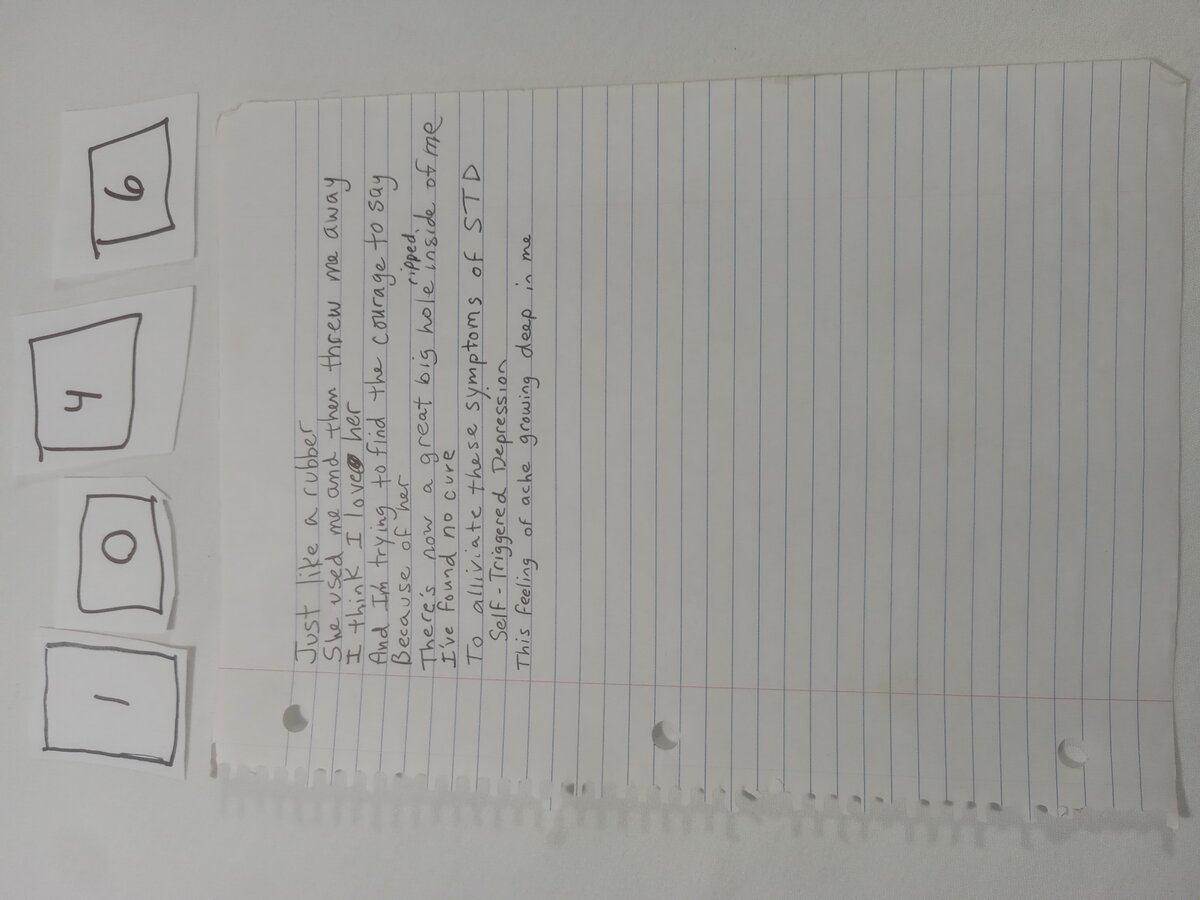 1 0 4 6
Just like a rubber
She used me and then threw me away
I think I love her
And I'm trying to find the courage to say
Because of her
There's now a great big hole ripped inside of me
I've found no cure
To alliviate these symptoms of STD
Self-Triggered Depression
This feeling of ache growing deep in me